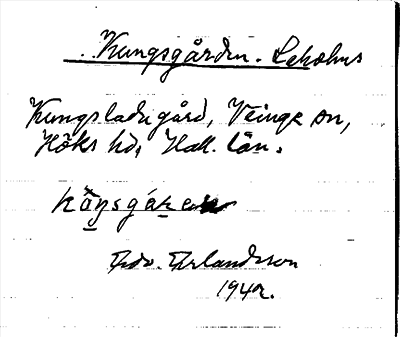 Kungsgården. Laholms
Kungsladugård, Veinge sn,
Höks hd, Hall. län.
kåṉsgáṟe
Edv. Erlandsson
1942.